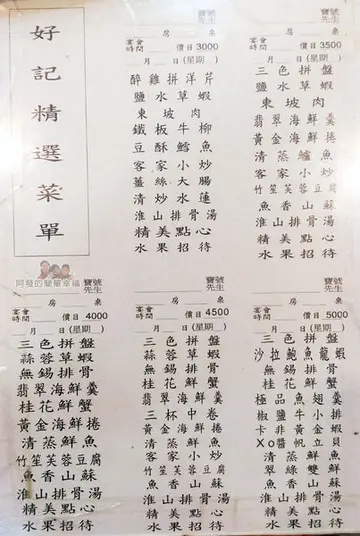 好記精選菜單
寶號
先生
房 桌
宴會
時間 價目3000
月 日(星期 )
醉雞拼洋芹
鹽水草蝦
東坡肉
鐵板牛柳
豆酥鱈魚
客家小炒
薑絲大腸
清炒水蓮
淮山排骨湯
精美點心
水果招待
寶號
先生
房 桌
宴會
時間 價目3500
月 日(星期 )
三色拼盤
鹽水草蝦
東坡肉
翡翠海鮮羹
黃金海鮮捲
清蒸鱸魚
客家小炒
竹笙芙蓉豆腐
魚香山蘇
淮山排骨湯
精美點心
水果招待
阿發的簡單幸福
寶號
先生
房 桌
宴會
時間 價目4000
月 日(星期 )
三色拼盤
蒜蓉草蝦
無錫排骨
翡翠海鮮羹
桂花鮮蟹
黃金海鮮捲
清蒸鮮魚
竹笙芙蓉豆腐
魚香山蘇
淮山排骨湯
精美點心
水果招待
寶號
先生
房 桌
宴會
時間 價目4500
月 日(星期 )
三色拼盤
蒜蓉草蝦
無錫排骨
桂花鮮蟹
翡翠海鮮羹
三杯中卷
黃金海鮮捲
清蒸鮮魚
客家小炒
竹笙芙蓉豆腐
魚香山蘇
淮山排骨湯
精美點心
水果招待
寶號
先生
房 桌
宴會
時間 價目5000
月 日(星期 )
三色拼盤
沙拉鮑魚龍蝦
無錫排骨
桂花鮮蟹
極品魚翅羹
椒鹽牛小排
卡非黃金捲
Xo醬帆立貝
清蒸鮮魚
翠綠雙鮮
魚香山蘇
淮山排骨湯
精美點心
水果招待